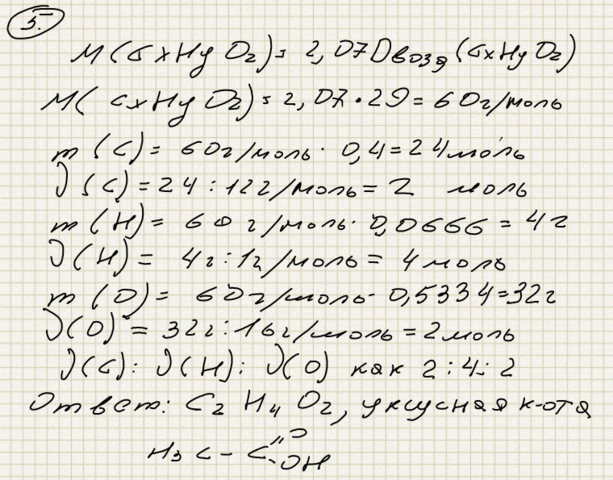 5.
M(CxHyOz)= 2,07Dвозд(CxHyOz)
M(CxHyOz)= 2,07·29=60г/моль
m(C)= 60г/моль· 0,4=24моль
ν(C)=24:12г/моль=2 моль
m(H)= 60 г/моль· 0,0666 = 4г
ν(H)= 4г:1г/моль= 4моль
m(O)= 60г/моль· 0,5334=32г
ν(O)=32г:16г/моль=2моль
ν(C): ν(H): ν(O) как 2:4:2
Ответ: C2H4O2, уксусная к-ота
H3C-C=O-OH